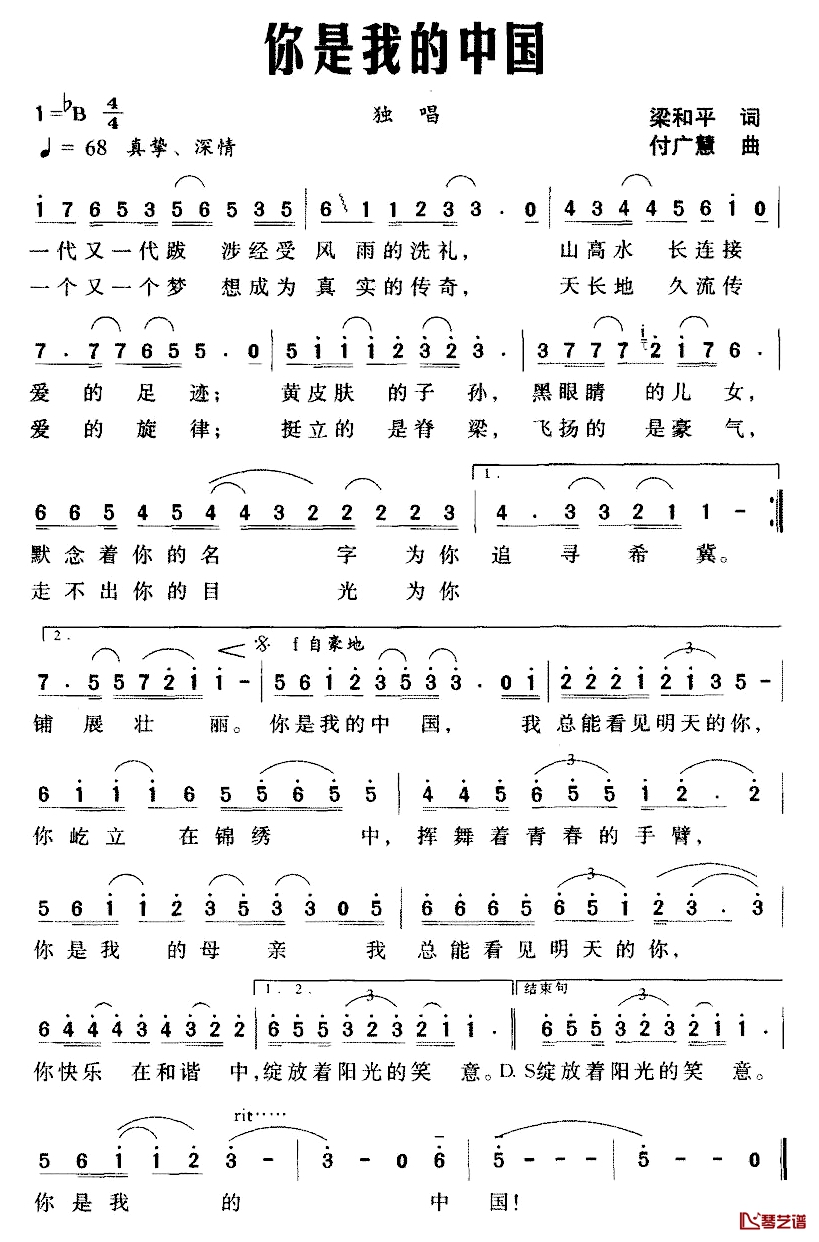 你是我的中国
1=♭B 4/4 独唱 梁和平 词
♩= 68 真挚、深情 付广慧 曲
i 7 6 5 3 5 6 5 3 5 6 1 1 2 3 3 . 0 4 3 4 4 5 6 i 0
一代又一代跋 涉经受 风 雨的洗礼， 山高水 长连接
一个又一个梦 想成为 真 实的传奇， 天长地 久流传
7 . 7 7 6 5 5 . 0 5 i i i 2 3 2 3 . 3 7 7 7 2 i 7 6 .
爱 的 足 迹； 黄皮肤 的子 孙， 黑眼睛 的儿 女，
爱 的 旋 律； 挺立的 是脊 梁， 飞扬的 是豪 气，
6 6 5 4 5 4 4 3 2 2 2 2 3 1. 4 . 3 3 2 1 1 –
默念着你的名 字 为你 追 寻 希 冀。
走不出你的目 光 为你
2. f 自豪地
7 . 5 5 7 2 i i – 5 6 i 2 3 5 3 3 . 0 i 2 2 2 i 2 i 3 5 –
铺 展 壮 丽。 你是我的中 国， 我 总能看见明天的你，
6 i i i 6 5 5 6 5 5 4 4 5 6 5 5 i 2 . 2
你屹立 在锦绣 中， 挥舞着青春的手臂，
5 6 i i 2 3 5 3 3 0 5 6 6 6 5 6 5 i 2 3 . 3
你是我 的母 亲 我 总能看见明天的你，
1. 2. 结束句
6 4 4 4 3 4 3 2 2 6 5 5 3 2 3 2 i i . 6 5 5 3 2 3 2 i i .
你快乐 在和谐 中，绽放着阳光的笑 意。D.S绽放着阳光的笑 意。
rit······
5 6 i i 2 3 – 3 – 0 6 5 – 5 – 0
你是我 的 中 国！
琴艺谱